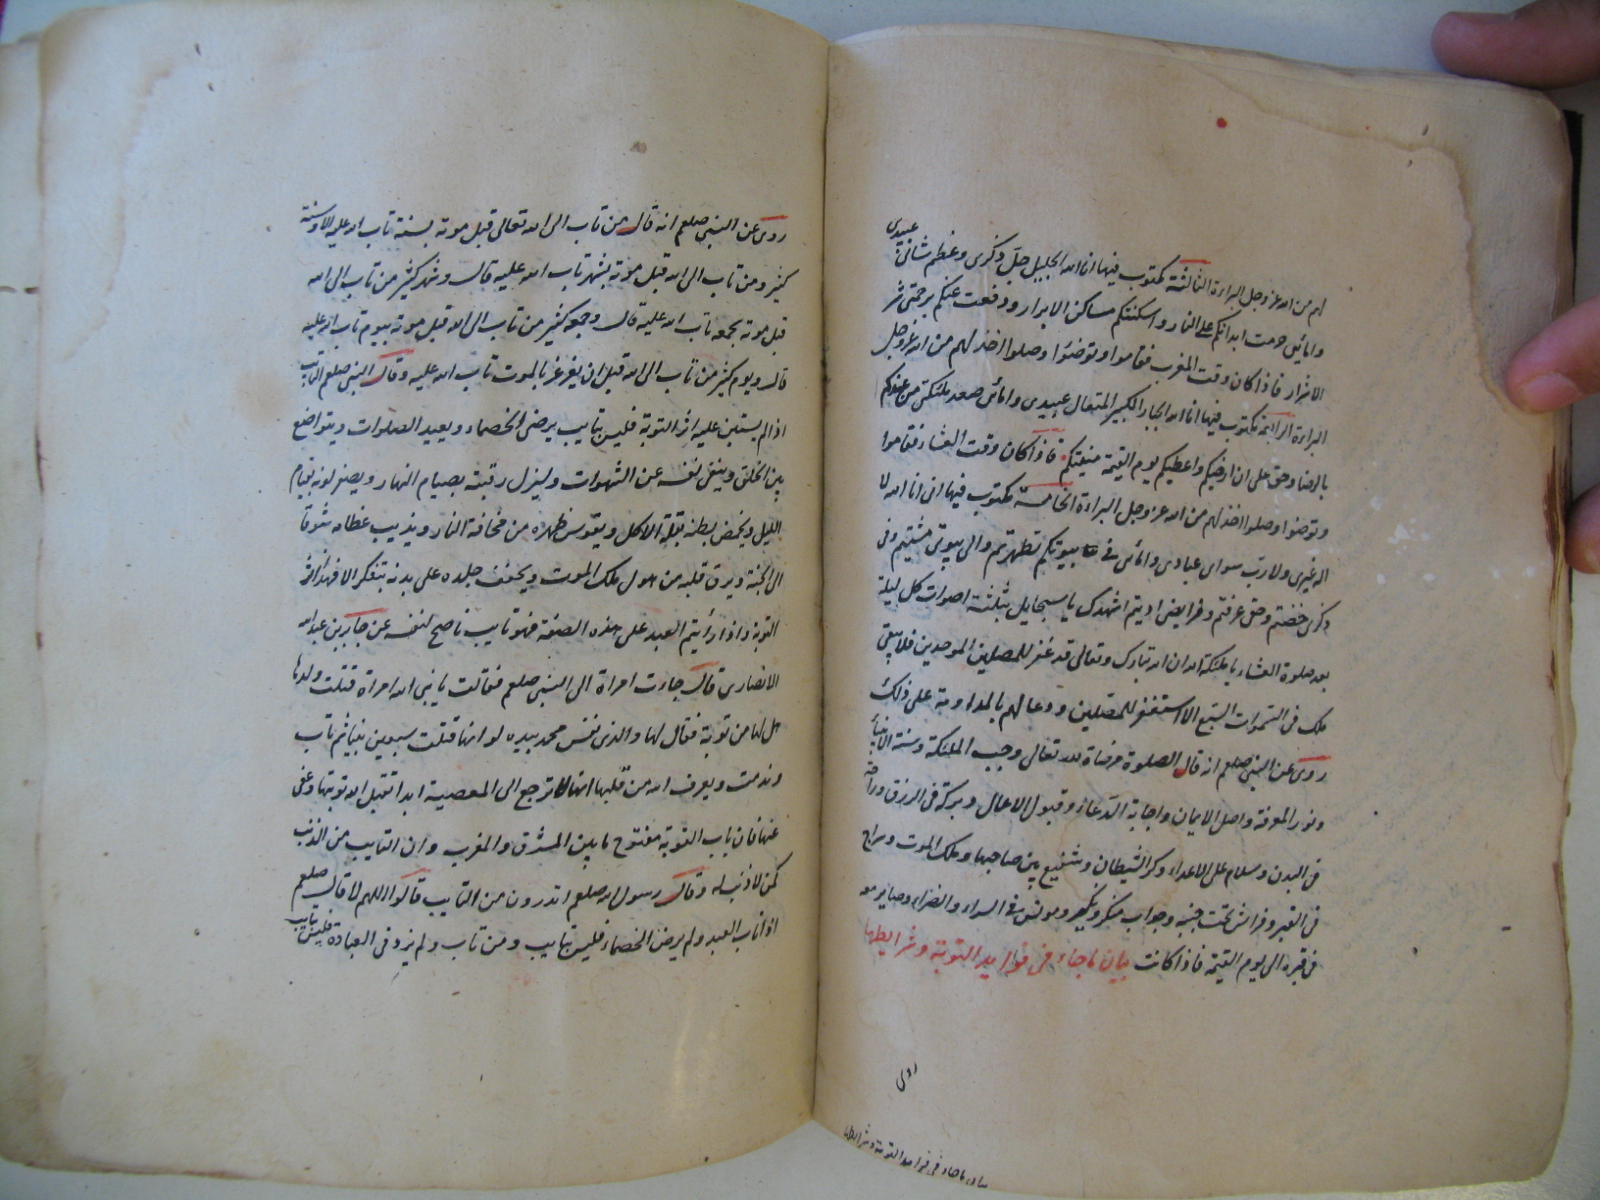 لهم من الله عز وجل البراءة الثالثة مكتوب فيها انا الله الجليل جل ذكرى وعظم شانى عبيدى
وامائى حرمت ابدانكم على النار واسكنتكم مساكن الابرار ودفعت عنكم برحمتى شر
الاشرار فاذا كان وقت المغرب فقاموا وتوضئوا وصلوا اخذ لهم من الله عز وجل
البراءة الرابعة مكتوب فيها انا الله الجبار الكبير المتعال عبيدى وامائى صعد ملئكتى من عندكم
بالرضا وحق على ان ارضيكم واعطيكم يوم القيمة منيتكم فاذا كان وقت العشاء فقاموا
وتوضوا وصلوا اخذ لهم من الله عز وجل البراءة الخامسة مكتوب فيها انى انا الله لا
اله غيرى ولا رب سواى عبادى وامائى فى بيوتكم تطهرتم والى بيوتى مشيتم وفى
ذكرى خضتم وحقى عرفتم وفرايضى اديتم اشهدك يا سبحايل بثلثة اصوات كل ليلة
بعد صلوة العشاء يا ملئكة الله ان الله تبارك وتعالى قد غفر للمصلين الموحدين فلا يبقى
ملك فى السموات السبع الا استغفر للمصلين ودعا لهم بالمداومة على ذلك
روى عن النبى صلعم انه قال الصلوة مرضاة لله تعالى وحب الملئكة وسنة الانبياء
ونور المعرفة واصل الايمان واجابة الدعاء وقبول الاعمال وبركة فى الرزق وراحة
فى البدن وسلام على الاعداء وكره الشيطان وشفيع بين صاحبها وملك الموت وسراج
فى القبر وفراش تحت جنبه وجواب منكر ونكير ومونس فى السراء والضراء وصاير معه
فى قبره الى يوم القيمة فاذا كانت بيان ما جاء فى فوايد التوبة وشرايطها
روى
بيان ما جاء فى فوايد التوبة وشرايطها
روى عن النبى صلعم انه قال من تاب الى الله تعالى قبل موته بسنة تاب الله عليه الا وسنة
كثير ومن تاب الى الله قبل موته بشهر تاب الله عليه قال وشهر كثير من تاب الى الله
قبل موته بجمعه تاب الله عليه قال وجمعه كثير من تاب الى الله قبل موته بيوم تاب الله عليه
قال ويوم كثير من تاب الى الله قبل ان يغرغر بالموت تاب الله عليه وقال النبى صلعم التايب
اذا لم يستبن عليه اثر التوبة فليس بتايب يرضى الخصماء ويعيد الصلوات ويتواضع
بين الخلق ويتقى نفسه عن الشهوات وليزل رقبته بصيام النهار ويصفر لونه بقيام
الليل ويخمص بطنه بقلة الاكل ويقوس ظهره من مخافة النار ويذيب عظامه شوقا
الى الجنة ويرق قلبه من هول ملك الموت ويجفف جلده على بدنه بتفكر الا فهذا اثر
التوبة واذا رأيتم العبد على هذه الصفة فهو تايب ناصح لنفسه عن جابر بن عبد الله
الانصارى قال جاءت امراة الى النبى صلعم فقالت يا نبى الله امراة قتلت ولدها
هل لها من توبة فقال لها والذى نفس محمد بيده لو انها قتلت سبعين نبيا ثم تاب
وندمت ويعرف الله من قلبها انها لا ترجع الى المعصية ابدا تقبل الله توبتها وعفى
عنها فان باب التوبة مفتوح ما بين المشرق والمغرب وان التايب من الذنب
كمن لا ذنب له وقال رسول الله صلعم اتدرون من التايب قالوا اللهم لا قال صلعم
اذا تاب العبد ولم يرض الخصماء فليس بتايب ومن تاب ولم يزد فى العبادة فليس بتايب